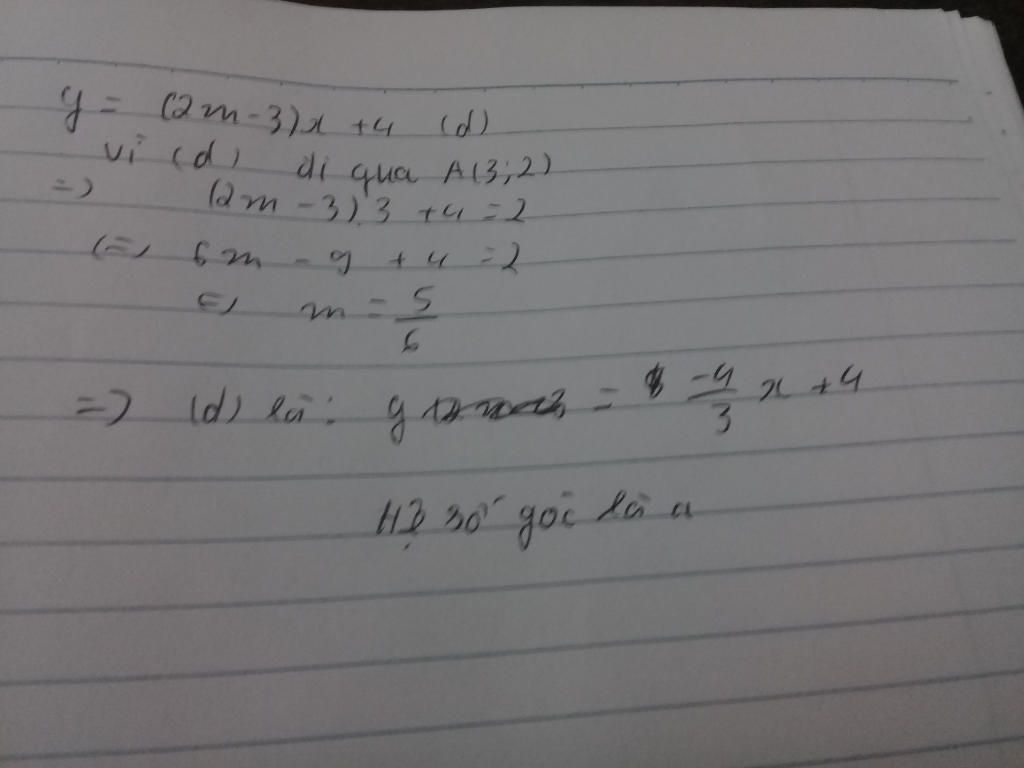 y = (2m-3)x +4 (d)
Vì (d) đi qua A(3;2)
=> (2m-3).3 +4 =2
<=> 6m - 9 + 4 =2
<=> m = 5/6
=> (d) là: y = -4/3 x +4
Hệ số góc là a